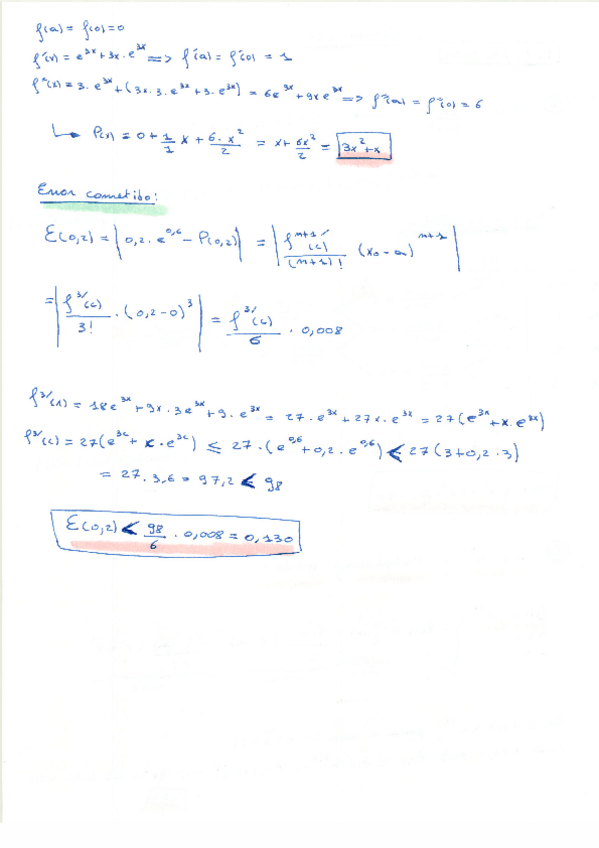 f(a) = f(0) = 0
f'(x) = e^{3x} + 3x · e^{3x} ⟹ f'(a) = f'(0) = 1
f''(x) = 3 · e^{3x} + (3x · 3 · e^{3x} + 3 · e^{3x}) = 6e^{3x} + 9x e^{3x} ⟹ f''(a) = f''(0) = 6
↳ P(x) = 0 + 1/1 x + 6 · x^2/2 = x + 6x^2/2 = 3x^2 + x
Error cometido:
E(0,2) = |0,2 · e^{0,6} − P(0,2)| = |f^{n+1'}(c)/(n+1)! (x_0 − a)^{n+1}|
= |f^{3'}(c)/3! · (0,2 − 0)^3| = f^{3'}(c)/6 · 0,008
f^{3'}(x) = 18e^{3x} + 9x · 3e^{3x} + 9 · e^{3x} = 27 · e^{3x} + 27x · e^{3x} = 27(e^{3x} + x · e^{3x})
f^{3'}(c) = 27(e^{3c} + c · e^{3c}) ≤ 27 · (e^{0,6} + 0,2 · e^{0,6}) < 27(3 + 0,2 · 3)
= 27 · 3,6 = 97,2 < 98
E(0,2) < 98/6 · 0,008 = 0,130